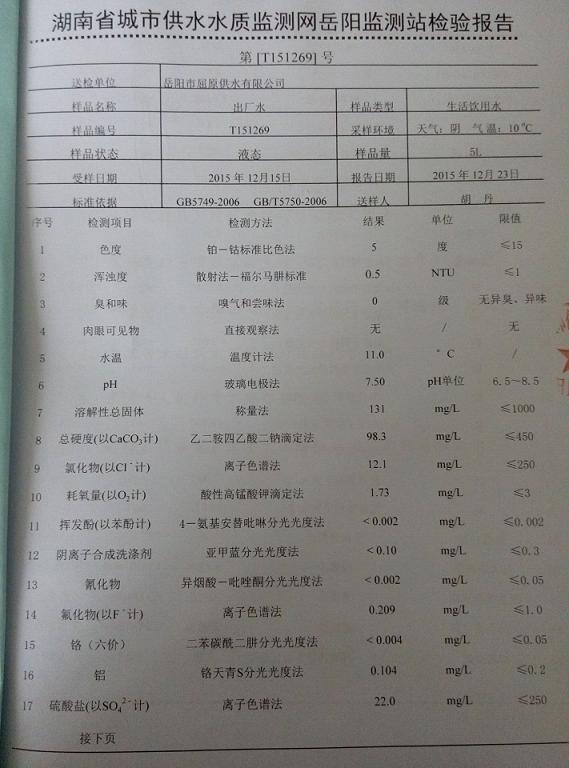 湖南省城市供水水质监测网岳阳监测站检验报告
第 [T151269] 号
送检单位 岳阳市屈原供水有限公司
样品名称 出厂水 样品类型 生活饮用水
样品编号 T151269 采样环境 天气：阴 气温：10℃
样品状态 液态 样品量 5L
受样日期 2015 年 12月15日 报告日期 2015 年 12月 23日
标准依据 GB5749-2006 GB/T5750-2006 送样人 胡 丹
序号 检测项目 检测方法 结果 单位 限值
1 色度 铂－钴标准比色法 5 度 ≤15
2 浑浊度 散射法－福尔马肼标准 0.5 NTU ≤1
3 臭和味 嗅气和尝味法 0 级 无异臭、异味
4 肉眼可见物 直接观察法 无 / 无
5 水温 温度计法 11.0 ° C /
6 pH 玻璃电极法 7.50 pH单位 6.5～8.5
7 溶解性总固体 称量法 131 mg/L ≤1000
8 总硬度(以CaCO₃计) 乙二胺四乙酸二钠滴定法 98.3 mg/L ≤450
9 氯化物(以Cl⁻计) 离子色谱法 12.1 mg/L ≤250
10 耗氧量(以O₂计) 酸性高锰酸钾滴定法 1.73 mg/L ≤3
11 挥发酚(以苯酚计) 4－氨基安替吡啉分光光度法 < 0.002 mg/L ≤0.002
12 阴离子合成洗涤剂 亚甲蓝分光光度法 < 0.10 mg/L ≤0.3
13 氰化物 异烟酸－吡唑酮分光光度法 < 0.002 mg/L ≤0.05
14 氟化物(以F⁻计) 离子色谱法 0.209 mg/L ≤1.0
15 铬（六价） 二苯碳酰二肼分光光度法 < 0.004 mg/L ≤0.05
16 铝 铬天青S分光光度法 0.104 mg/L ≤0.2
17 硫酸盐(以SO₄²⁻计) 离子色谱法 22.0 mg/L ≤250
接下页